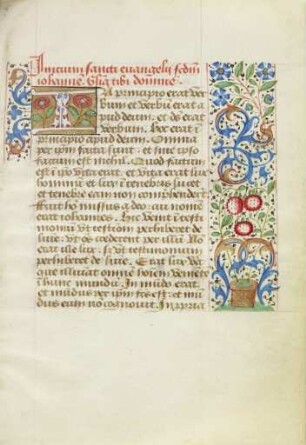 Inicium sancti evangelij scdm
iohanne. Gla tibi domine.
In principio erat ver
bum et verbu erat a
pud deum. et ds erat
verbum. hoc erat i
principio apud deum. Omnia
per ipm facta sunt. et sine ipso
factum est nichil. Quod factum
est i ipo vita erat. et vita erat lux
hominu. et lux i tenebris lucet
et tenebre eam non comprehenderut
fuit ho missus a deo. cui nomen
erat iohannes. hic venit i testi
moniu. ut testimoniu perhiberet de
lumine. ut oes crederent per illum. No
erat ille lux. sed ut testimonium
perhiberet de lumine. Erat lux ve
ra que illuminat omne hoiem veniete
i hunc mundu. In mudo erat
et mudus per ipm fcs est. et mu
dus eum no cognovit. In propria